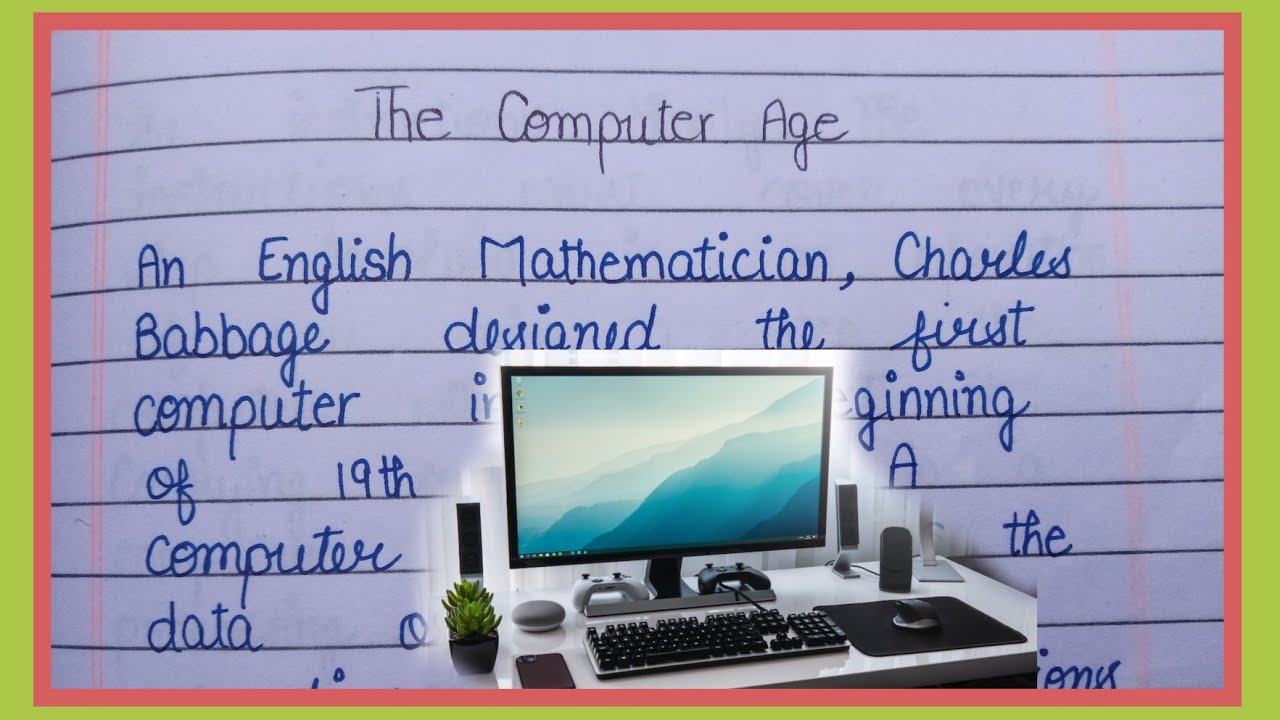 The Computer Age
An English Mathematician, Charles
Babbage designed the first
computer in
of 19th A
computer the
data